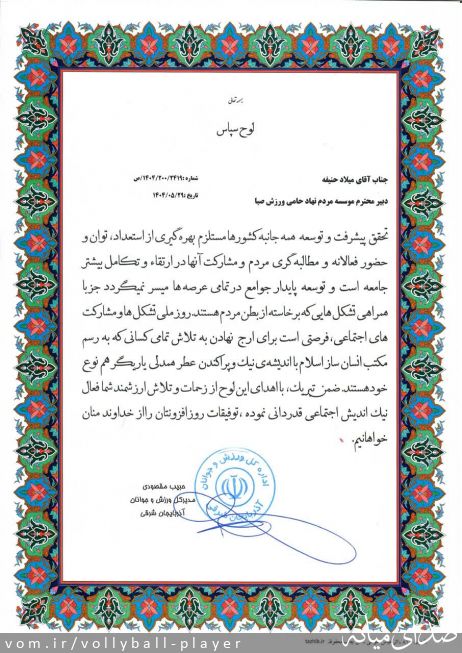 بسمه تعالی
لوح سپاس
شماره: ۱۴۰۴/۲۰۰/۳۴۱۹/ص
جناب آقای میلاد حنیفه
تاریخ: ۱۴۰۴/۰۵/۲۹
دبیر محترم موسسه مردم نهاد حامی ورزش صبا
تحقق پیشرفت و توسعه همه جانبه کشورها مستلزم بهره گیری از استعداد، توان و
حضور فعالانه و مطالبه گری مردم و مشارکت آنها در ارتقاء و تکامل بیشتر
جامعه است و توسعه پایدار جوامع در تمامی عرصه ها میسر نمیگردد جز با
همراهی تشکل هایی که برخاسته از بطن مردم هستند. روز ملی تشکل ها و مشارکت
های اجتماعی، فرصتی است برای ارج نهادن به تلاش تمامی کسانی که به رسم
مکتب انسان ساز اسلام با اندیشه ی نیک و پراکندن عطر همدلی یاریگر هم نوع
خود هستند. ضمن تبریک، با اهدای این لوح از زحمات و تلاش ارزشمند شما فعال
نیک اندیش اجتماعی قدردانی نموده، توفیقات روزافزونتان را از خداوند منان
خواهانیم.
اداره کل ورزش و جوانان
آذربایجان شرقی
حبیب مقصودی
مدیرکل ورزش و جوانان
آذربایجان شرقی
صدای میانه
vom.ir/vollyball-player